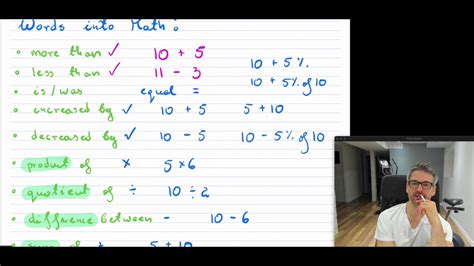 Words into Math:
• more than ✓ 10 + 5 10 + 5%
• less than ✓ 11 - 3 10 + 5% of 10
• is/was equal =
• increased by ✓ 10 + 5 5 + 10
• decreased by ✓ 10 - 5 10 - 5% of 10
• product of × 5 × 6
• quotient of ÷ 10 ÷ 2
• difference between - 10 - 6
• sum of + 5 + 10